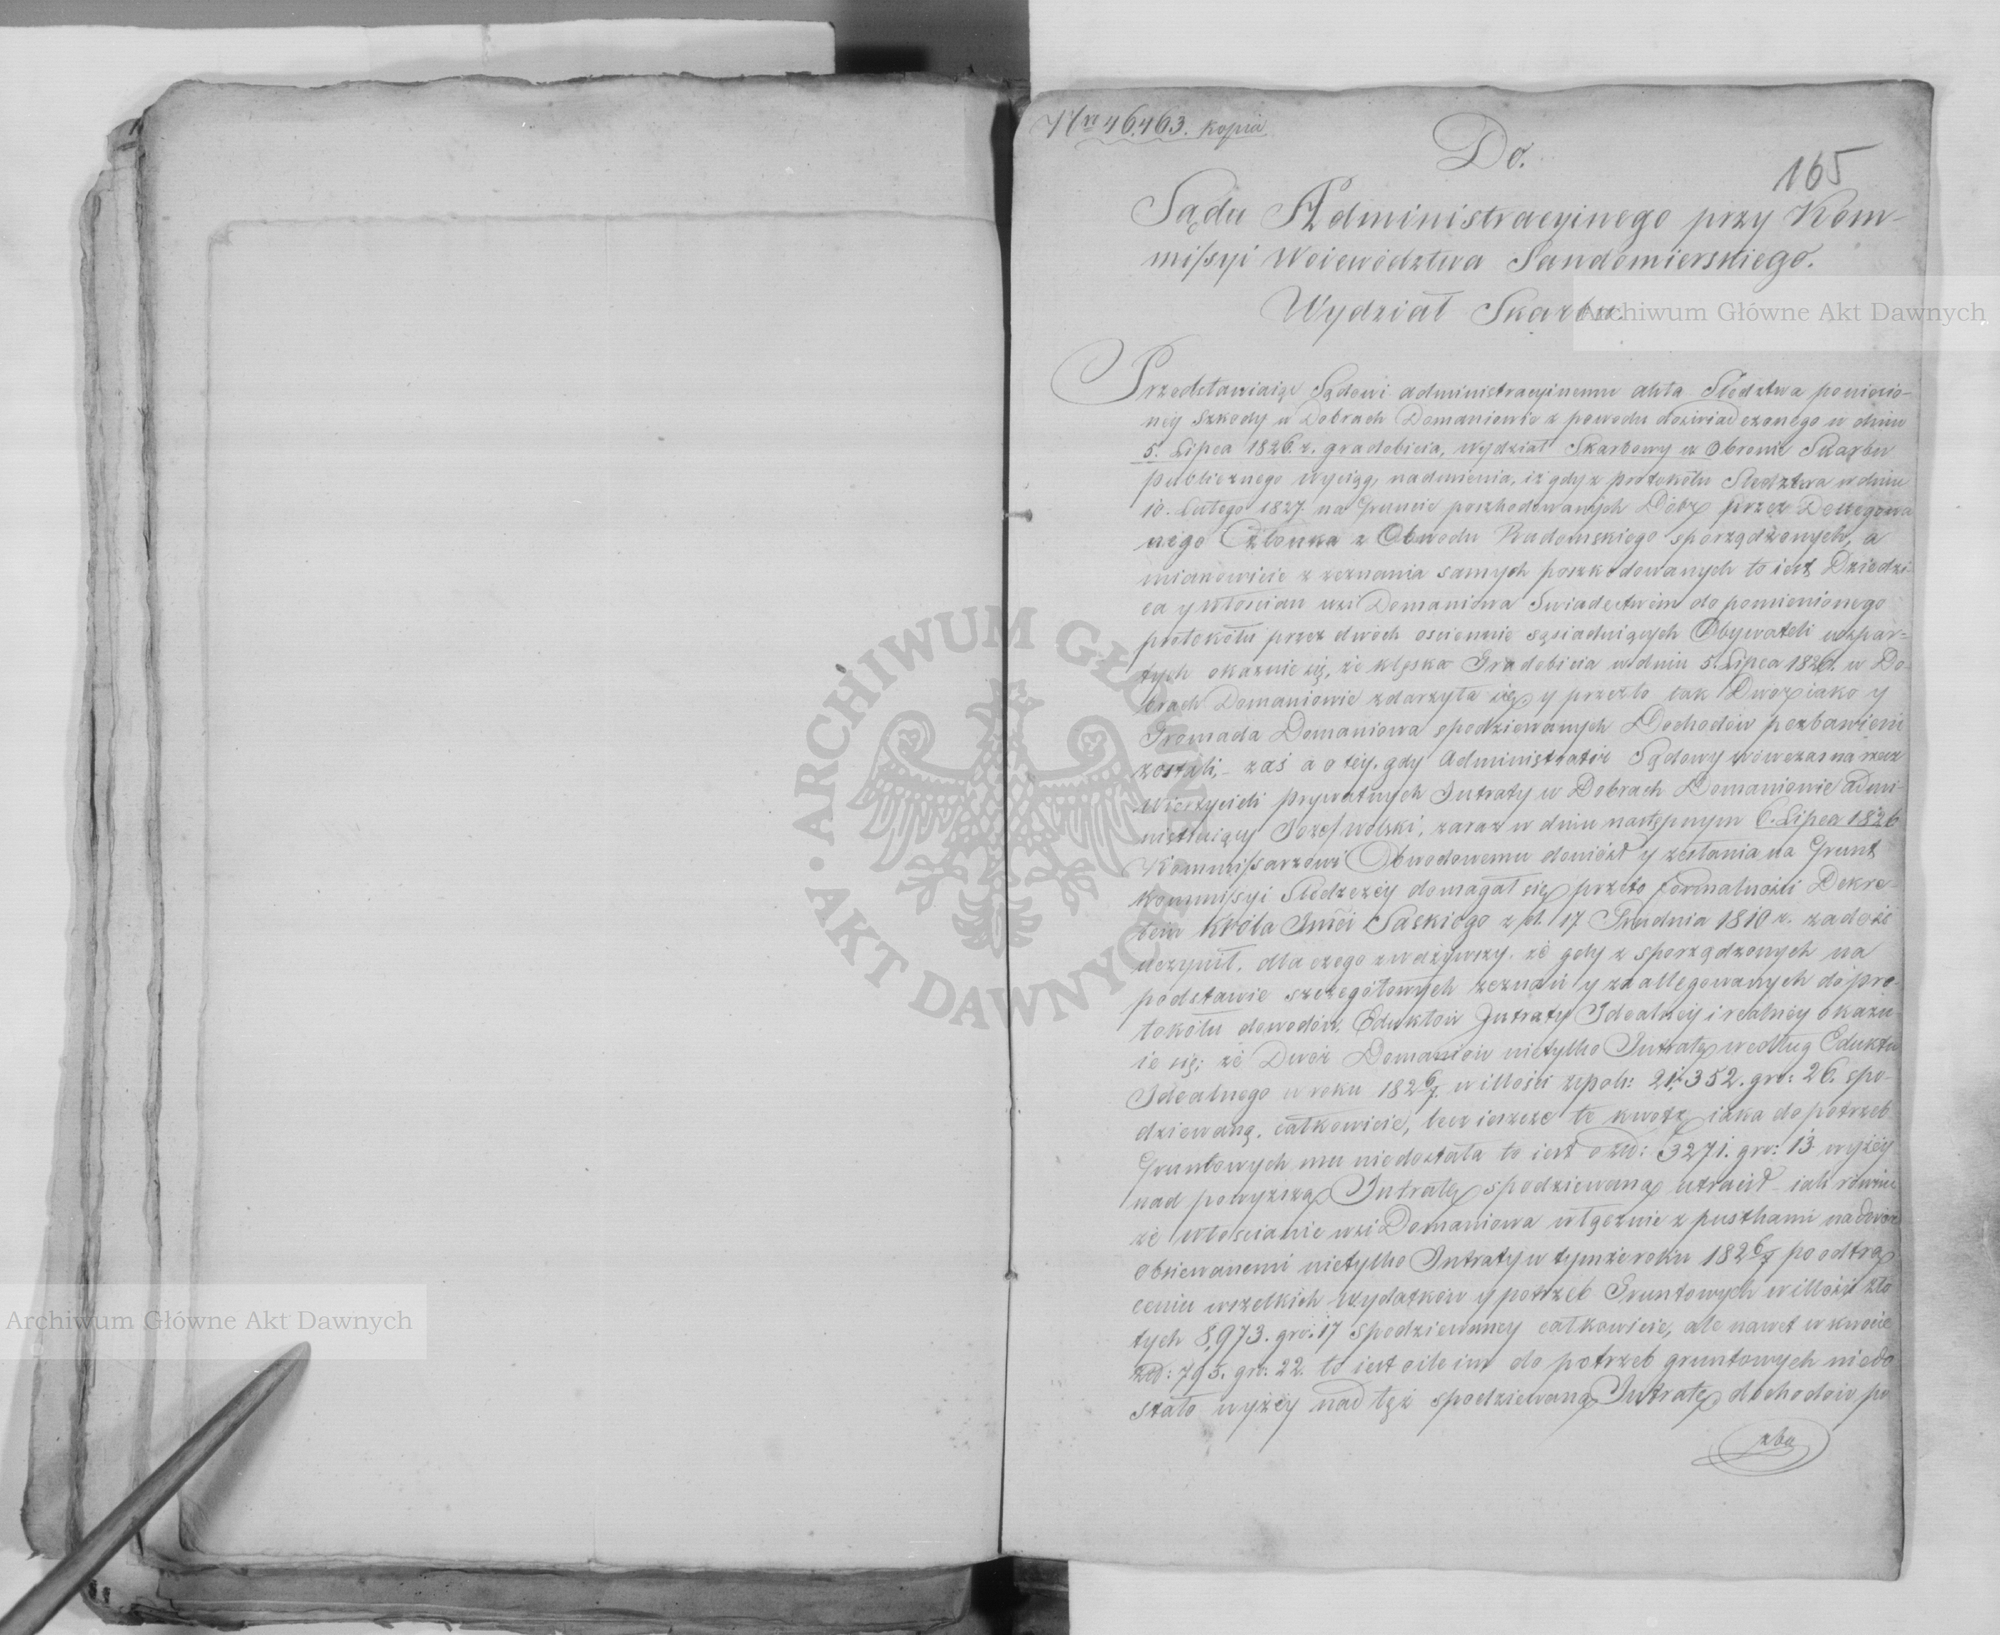 Nro 46,463. Kopia
165
Do.
Sądu Administracyinego przy Kom-
missyi Woiewództwa Sandomierskiego.
Wydział Skarbu.
Przedstawiaiąc Sądowi administracyinemu akta Śledztwa poniesio-
ney szkody w Dobrach Domaniowie z powodu doświadczonego w dniu
5. Lipca 1826. r. gradobicia, Wydział Skarbowy w Obronie Skarbu
publicznego wyciąg, nadmienia, iż gdy z protokółu Śledztwa w dniu
10. Lutego 1827 na Gruncie poszkodowanych Dóbr przez Delegowa
nego Członka z Obwodu Radomskiego sporządzonych, a
mianowicie z zeznania samych poszkodowanych to iest Dziedzi-
ca y Włościan wsi Domaniowa Swiadectwem do pomienionego
protokółu przez dwóch ościennie sąsiaduiących Obywateli wspar-
tych okazuie się, że klęska Gradobicia w dniu 5. Lipca 1826. w Do-
brach Domaniowie zdarzyła się y przez to tak Dwór iako y
Gromada Domaniowa spodziewanych Dochodów pozbawieni
zostali, - zaś a o tey, gdy Administrator Sądowy wówczas na rzecz
Wierzycieli prywatnych Intraty w Dobrach Domaniowie admi-
nistruiący Jozef Wolski, zaraz w dniu następnym 6. Lipca 1826
Kommissarzowi Obwodowemu doniósł y zesłania na Grunt
Kommissyi Śledzczey domagał się przeto formalności Dekre-
tem Króla Jmci Saskiego z d. 17 Grudnia 1810 r. zadosić
uczynił. dla czego zważywszy, że gdy z sporządzonych na
podstawie szczegółowych zeznań y zaallegowanych do pro-
tokółu dowodów, Eduktów Intraty Idealney i realney okazu
ie się; że Dwór Domaniów nietylko Intratę według Eduktu
Idealnego w roku 1826/7 w illości złpol: 21,352. gro: 26. spo-
dziewaną, całkowicie, lecz ieszcze te kwotę iaka do potrzeb
Gruntowych mu niedostała to iest o złł: 3271. gro: 13 wyżey
nad powyższą Intratę spodziewaną utracił iak równie
że Włościanie wsi Domaniowa włącznie z pustkami na dwór
obsiewanemi nietylko Intraty w tymże roku 1826/7 po odtrą
ceniu wszelkich Wydatków y potrzeb Gruntowych w illości zło
tych 8,973. gro. 17 spodziewaney całkowicie, ale nawet w kwocie
złł: 795. gro: 22. to iest o ile im do potrzeb gruntowych niedo
stało wyżey nad tęż spodziewaną Intratę dochodów po
zba
Archiwum Główne Akt Dawnych
Archiwum Główne Akt Dawnych
ARCHIWUM GŁÓWNE AKT DAWNYCH